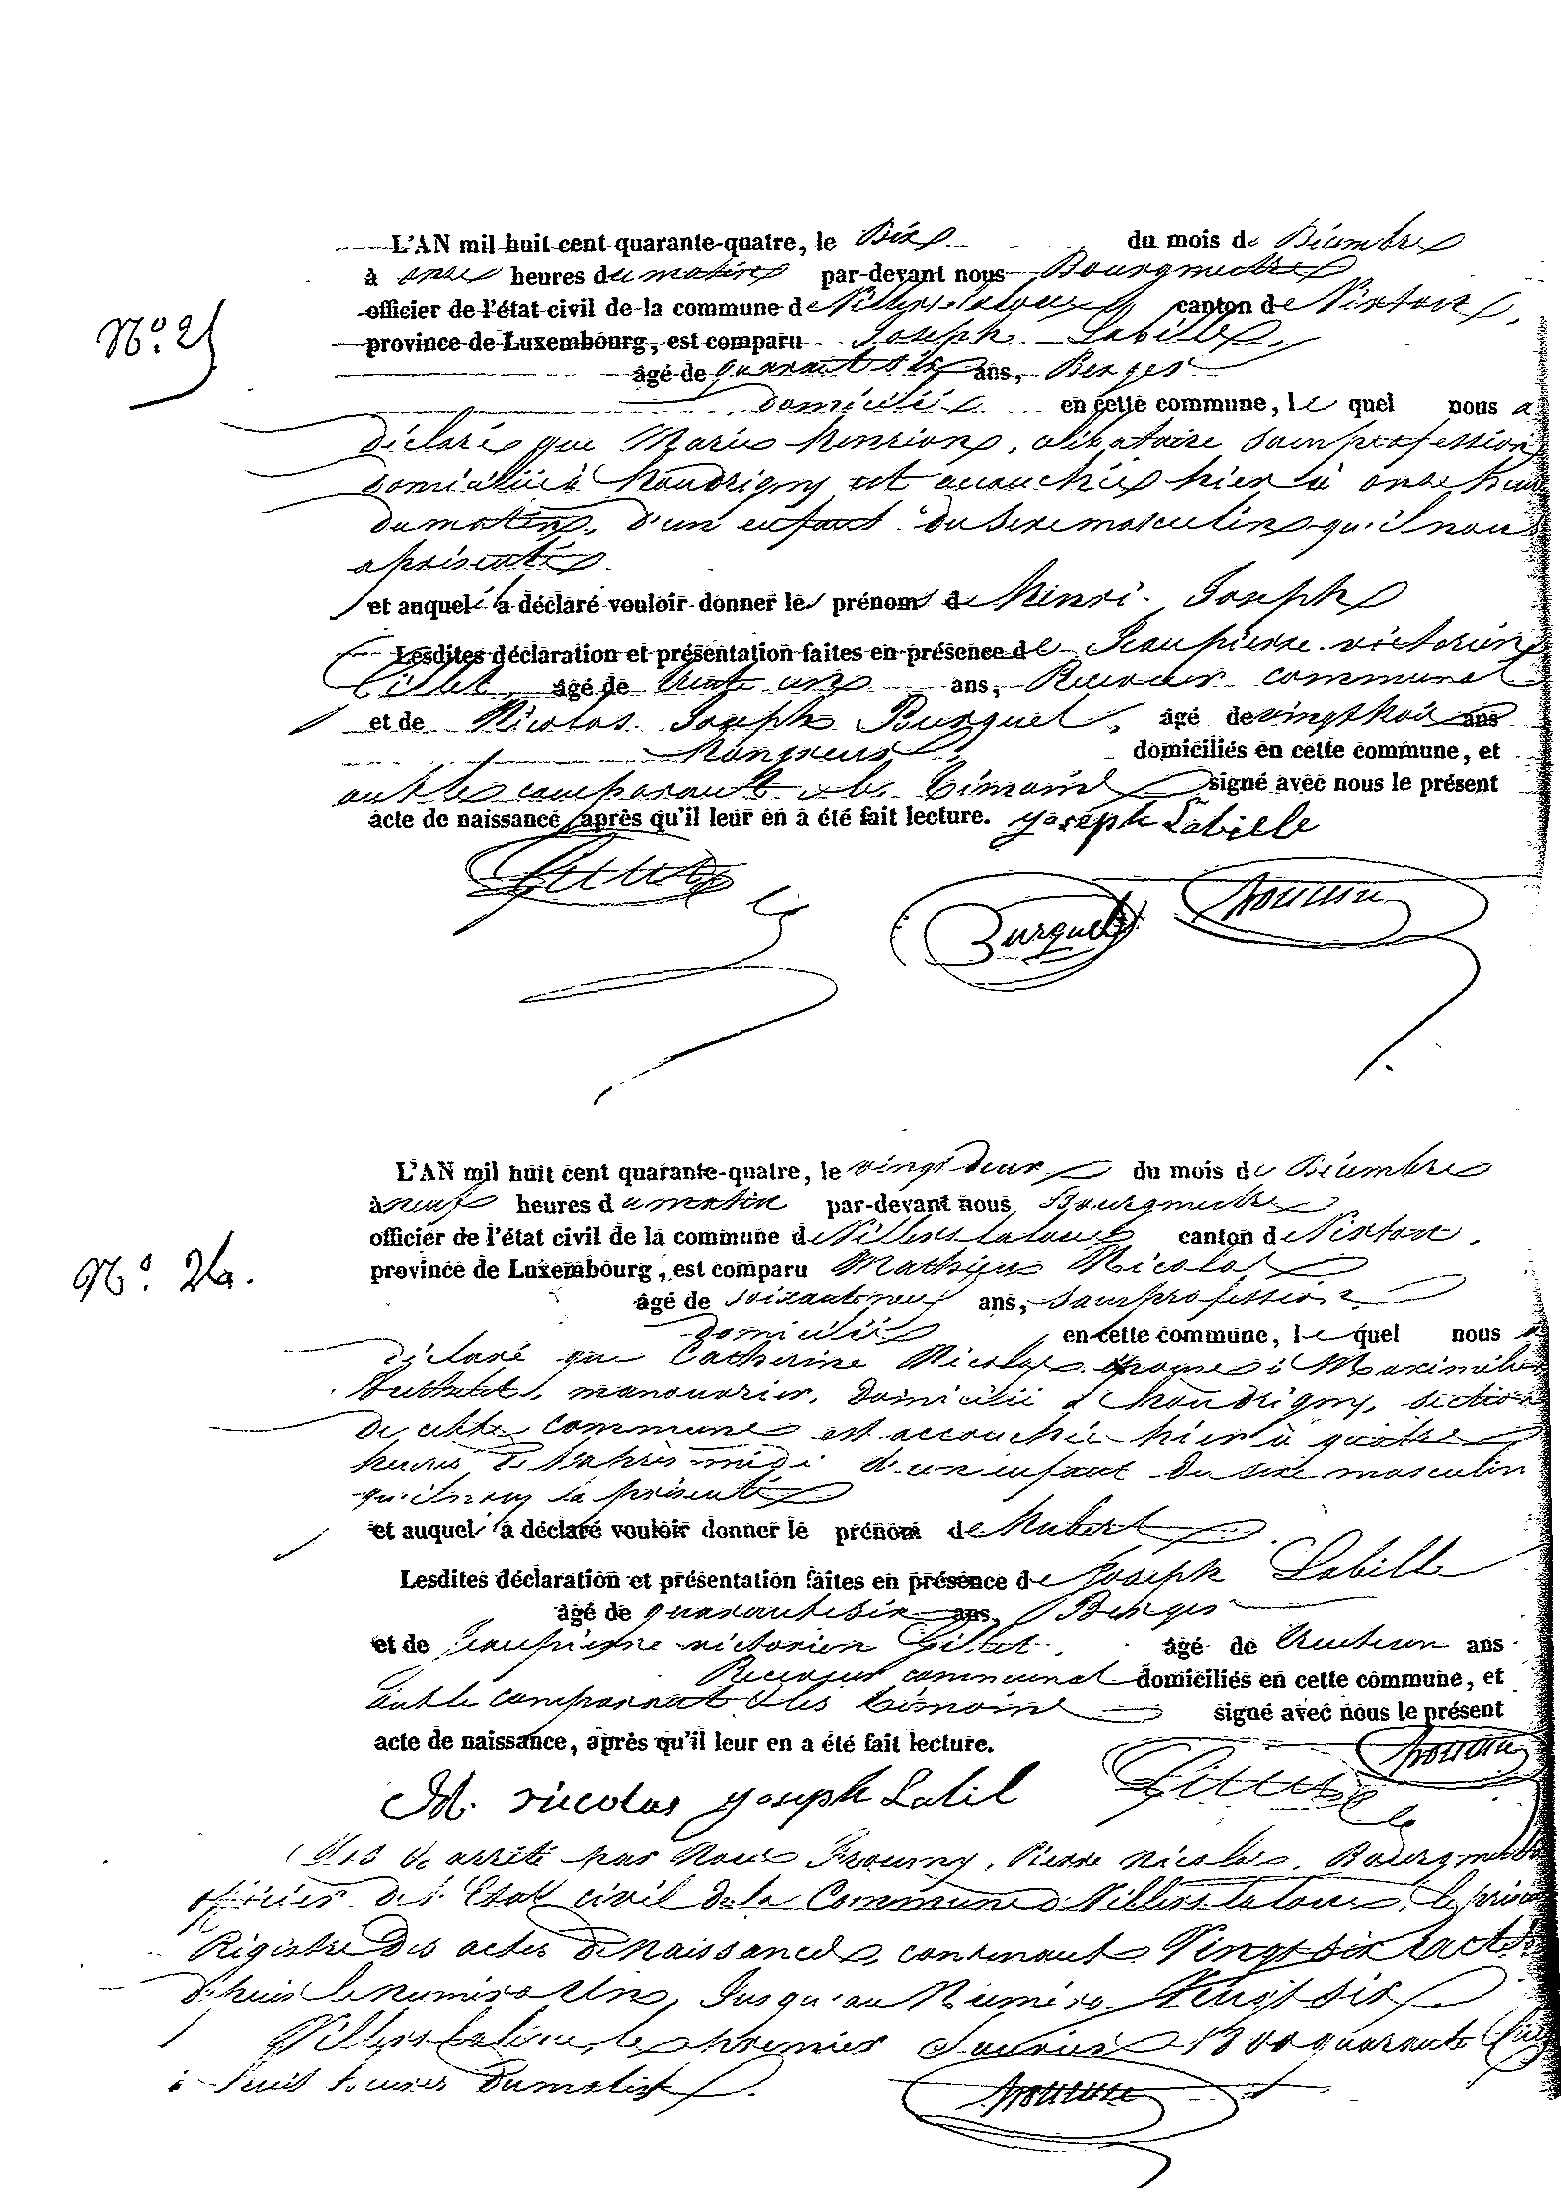 L'AN mil huit cent quarante-quatre, le Dix du mois de Décembre
à onze heures du matin par-devant nous Bourgmestre
officier de l'état civil de la commune de Villers la loue canton de Virton,
N.o 25
province de Luxembourg, est comparu Joseph Labille,
âgé de quarante six ans, Berger
domicilié en cette commune, le quel nous a
déclaré que Marie henrion, célibataire sans profession
domiciliée à houdrigny est accouchée hier à onze heures
du matin, d'un enfant du sexe masculin qu'il nous
a présenté
et auquel il a déclaré vouloir donner les prénoms de Henri Joseph
Lesdites déclaration et présentation faites en présence de Jean pierre victorien
Gillet, âgé de trente un ans, Receveur communal
et de Nicolas Joseph Burquel, âgé de vingt trois ans
domiciliés en cette commune, et
ont le comparant et les témoins signé avec nous le présent
acte de naissance, après qu'il leur en a été fait lecture. yoseph Labille
Gillet Burquel
L'AN mil huit cent quarante-quatre, le vingt deux du mois de Décembre
à neuf heures du matin par-devant nous Bourgmestre
officier de l'état civil de la commune de Villers la loue canton de Virton,
N.o 26.
province de Luxembourg, est comparu Mathieu Nicolas
âgé de soixante neuf ans, sans profession
domicilié en cette commune, le quel nous a
déclaré que Catherine Nicolas épouse à Maximilien
manouvrier, domicilié à houdrigny, section
de cette commune est accouchée hier à quatre
heures de l'après midi d'un enfant du sexe masculin
qu'il nous a présenté
et auquel il a déclaré vouloir donner le prénom de Hubert
Lesdites déclaration et présentation faites en présence de Joseph Labille
âgé de quarante six ans, Berger
et de Jean pierre victorien Gillet, âgé de trente un ans
Receveur communal domiciliés en cette commune, et
ont le comparant et les témoins signé avec nous le présent
acte de naissance, après qu'il leur en a été fait lecture.
M. niccolas yoseph Labil Gillet
Clos & arrêté par Nous Pierre nicolas, Bourgmestre
officier de l'Etat civil de la Commune de Villers la loue, le présent
Registre des actes de naissances, contenant Vingt six actes
depuis le numéro Un, Jusqu'au Numéro Vingt six
Villers la loue, le premier Janvier 1800 quarante Cinq
à huit heures du matin